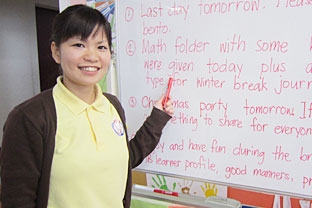 ① Last day tomorrow. Please
bento.
② Math folder with some
were given today plus a
type for winter break journ
③ Christmas party tomorrow. I
something to share for everyon
and have fun during the br
learner profile, good manners,